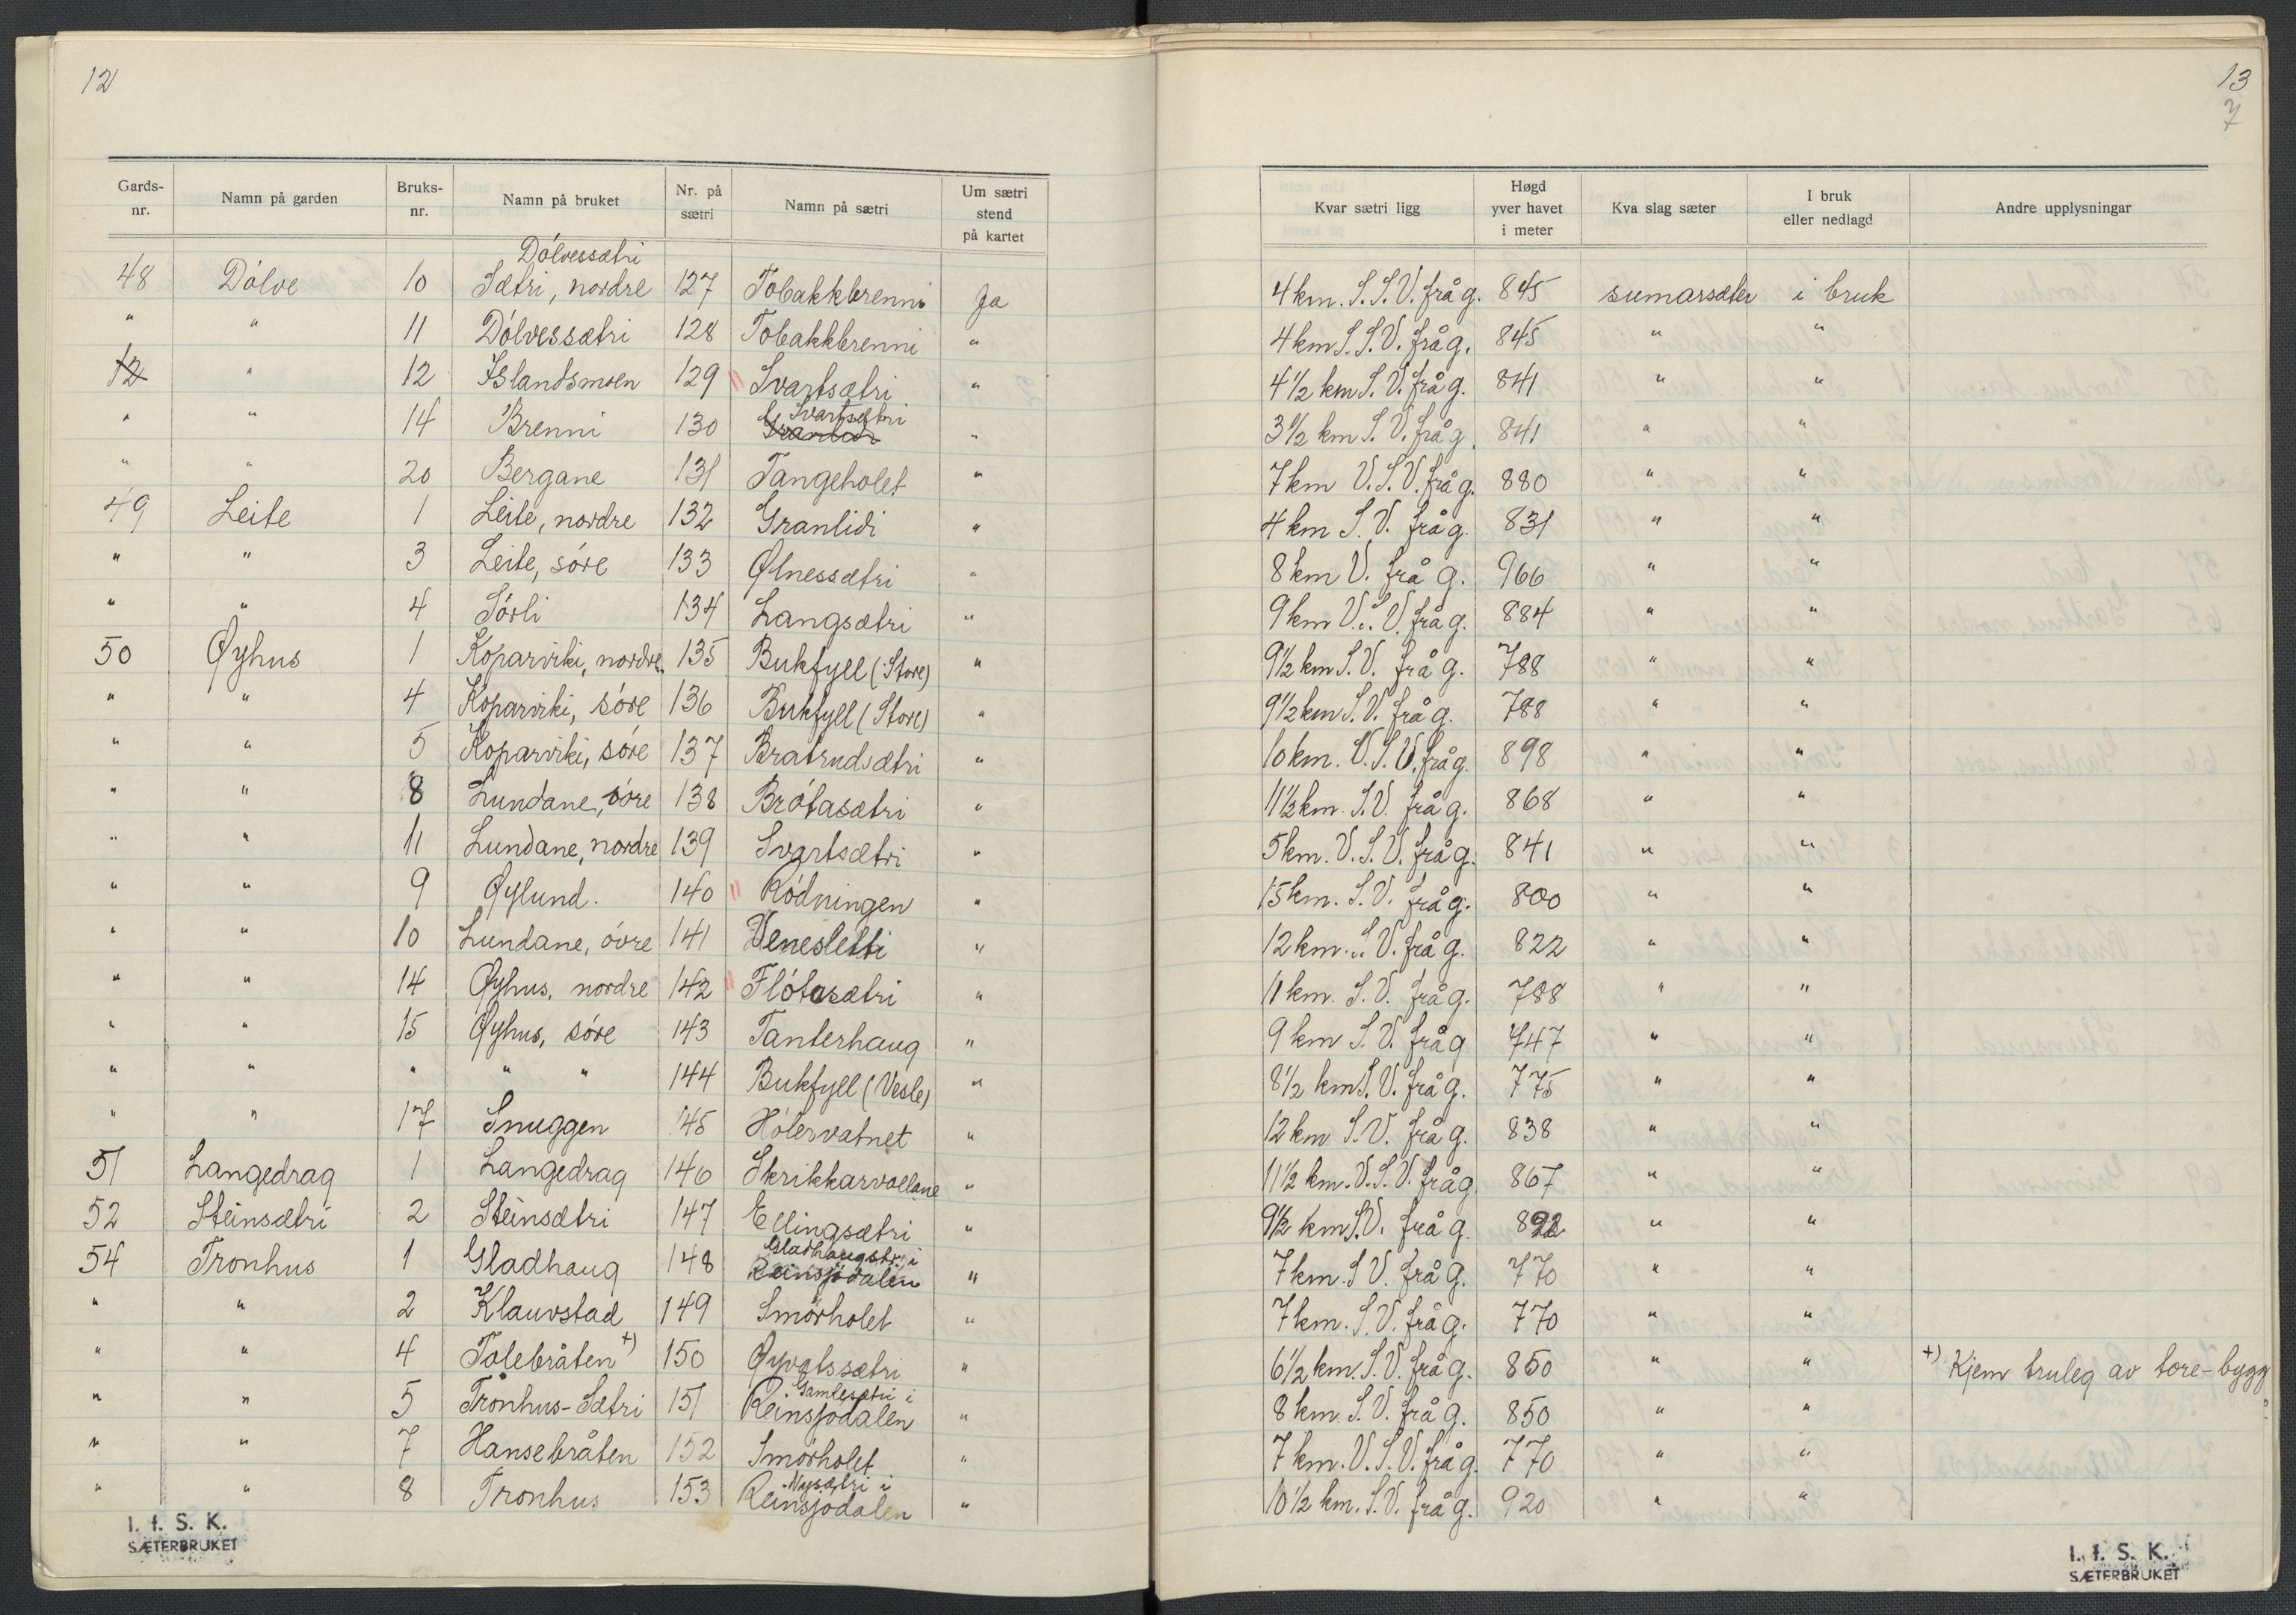 12
Gards-nr. Namn på garden Bruks-nr. Namn på bruket Nr. på sætri Namn på sætri Um sætri stend på kartet
Dólvessætri
48 Dólve 10 Sætri, nordre 127 Tobakkbrenni Ja
" " 11 Dólvessætri 128 Tobakkbrenni "
12 " 12 Islandsmoen 129 " Svartsætri "
Svartsætri
" " 14 Brenni 130 "
" " 20 Bergane 131 Tangeholet "
49 Leite 1 Leite, nordre 132 Granlidi "
" " 3 Leite, sóre 133 Ølnessætri "
" " 4 Sórli 134 Langsætri "
50 Øyhus 1 Koparviki, nordre 135 Bukfyll (Store) "
" " 4 Koparviki, sóre 136 Bukfyll (Store) "
" " 5 Koparviki, sóre 137 Bratrudsætri "
" " 8 Lundane, sóre 138 Brótasætri "
" " 11 Lundane, nordre 139 Svartsætri "
" " 9 Øylund. 140 " Ródningen "
" " 10 Lundane, óvre 141 Venesletti "
" " 14 Øyhus, nordre 142 " Flótasætri "
" " 15 Øyhus, sóre 143 Tanterhaug "
" " " " " 144 Bukfyll (Vesle) "
" " 17 Snuggen 145 Hólervatnet "
51 Langedrag 1 Langedrag 146 Skrikkarvollane "
52 Steinsætri 2 Steinsætri 147 Ellingsætri "
Gladhaugstr. i
54 Tronhus 1 Gladhaug 148 Reinsjódalen "
" " 2 Klauvstad 149 Smórholet "
" " 4 Tolebråten +) 150 Øyvatssætri "
Gamlesætri i
" " 5 Tronhus-Sætri 151 Reinsjodalen "
" " 7 Hansebråten 152 Smórholet "
Nysætri i
" " 8 Tronhus 153 Reinsjodalen "
I. f. S. K.
SÆTERBRUKET
13
7
Kvar sætri ligg Høgd yver havet i meter Kva slag sæter I bruk eller nedlagd Andre upplysningar
4 km. S.S.V. frå g. 845 sumarsæter i bruk
4 km S.S.V. frå g. 845 " "
4 1/2 km S.V. frå g. 841 " "
3 1/2 km S.V. frå g. 841 " "
7 km V.S.V. frå g. 880 " "
4 km S.V. frå g. 831 " "
8 km V. frå g. 966 " "
9 km V.S.V. frå g. 884 " "
9 1/2 km S.V. frå g. 788 " "
9 1/2 km S.V. frå g. 788 " "
10 km. V.S.V. frå g. 898 " "
11 1/2 km. S.V. frå g. 868 " "
5 km. V.S.V. frå g. 841 " "
15 km. S.V. frå g. 800 " "
12 km. S.V. frå g. 822 " "
11 km. S.V. frå g. 788 " "
9 km S.V. frå g 747 " "
8 1/2 km S.V. frå g. 775 " "
12 km S.V. frå g. 838 " "
11 1/2 km. V.S.V. frå g 867 " "
9 1/2 km S.V. frå g. " "
7 km. S V. frå g. 770 " "
7 km. S.V. frå g. 770 " "
6 1/2 km. S.V. frå g. 850 " " +) Kjem truleg av tore-bygg
8 km. S.V. frå g. 850 " "
7 km. V.S.V. frå g. 770 " "
10 1/2 km. S.V. frå g. 920 " "
I. f. S. K.
SÆTERBRUKET